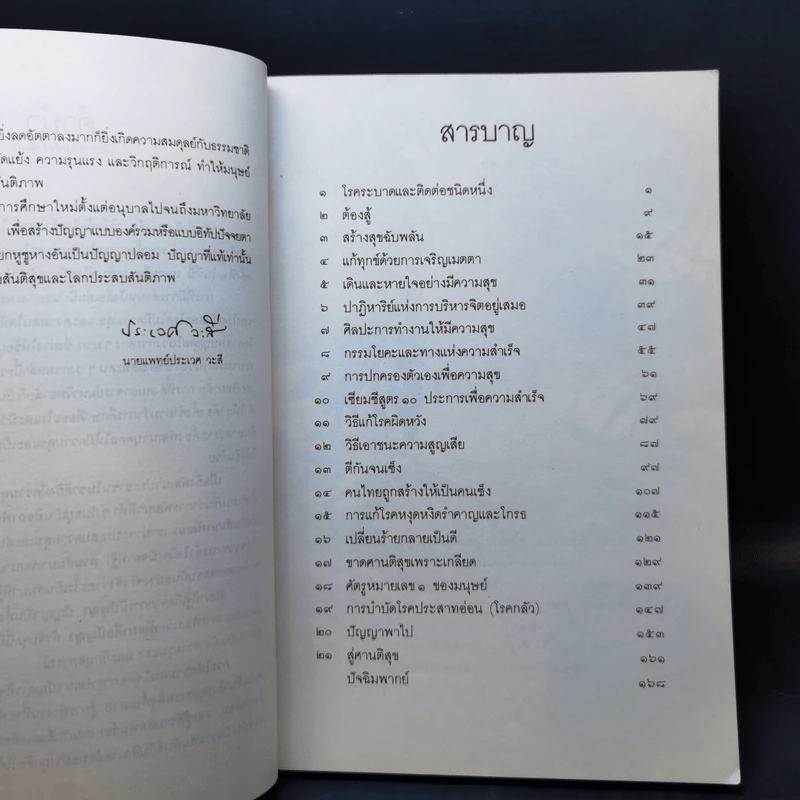 ยิ่งลดอัตตาลงมากก็ยิ่งเกิดความสมดุลย์กับธรรมชาติ
ความรุนแรง และวิกฤติการณ์ ทำให้มนุษย์
การศึกษาใหม่ตั้งแต่อนุบาลไปจนถึงมหาวิทยาลัย
เพื่อสร้างปัญญาแบบองค์รวมหรือแบบอิทัปปัจจยตา
อันเป็นปัญญาปลอม ปัญญาที่แท้เท่านั้น
สันติสุขและโลกประสบสันติภาพ
ประเวศ วะสี
นายแพทย์ประเวศ วะสี
สารบาญ
๑ โรคระบาดและติดต่อชนิดหนึ่ง ๑
๒ ต้องสู้ ๙
๓ สร้างสุขฉับพลัน ๑๕
๔ แก้ทุกข์ด้วยการเจริญเมตตา ๒๓
๕ เดินและหายใจอย่างมีความสุข ๓๑
๖ ปาฏิหาริย์แห่งการบริหารจิตอยู่เสมอ ๓๙
๗ ศิลปะการทำงานให้มีความสุข ๔๗
๘ กรรมโยคะและทางแห่งความสำเร็จ ๕๕
๙ การปกครองตัวเองเพื่อความสุข ๖๑
๑๐ เซียมซีสูตร ๑๐ ประการเพื่อความสำเร็จ ๖๙
๑๑ วิธีแก้โรคผิดหวัง ๗๙
๑๒ วิธีเอาชนะความสูญเสีย ๘๗
๑๓ ตีกันจนเซ็ง ๙๗
๑๔ คนไทยถูกสร้างให้เป็นคนเซ็ง ๑๐๗
๑๕ การแก้โรคหงุดหงิดรำคาญและโกรธ ๑๑๕
๑๖ เปลี่ยนร้ายกลายเป็นดี ๑๒๑
๑๗ ขาดศานติสุขเพราะเกลียด ๑๒๙
๑๘ ศัตรูหมายเลข ๑ ของมนุษย์ ๑๓๙
๑๙ การบำบัดโรคประสาทอ่อน (โรคกลัว) ๑๔๗
๒๐ ปัญญาพาไป ๑๕๓
๒๑ สู่ศานติสุข ๑๖๑
ปัจฉิมพากย์ ๑๖๘